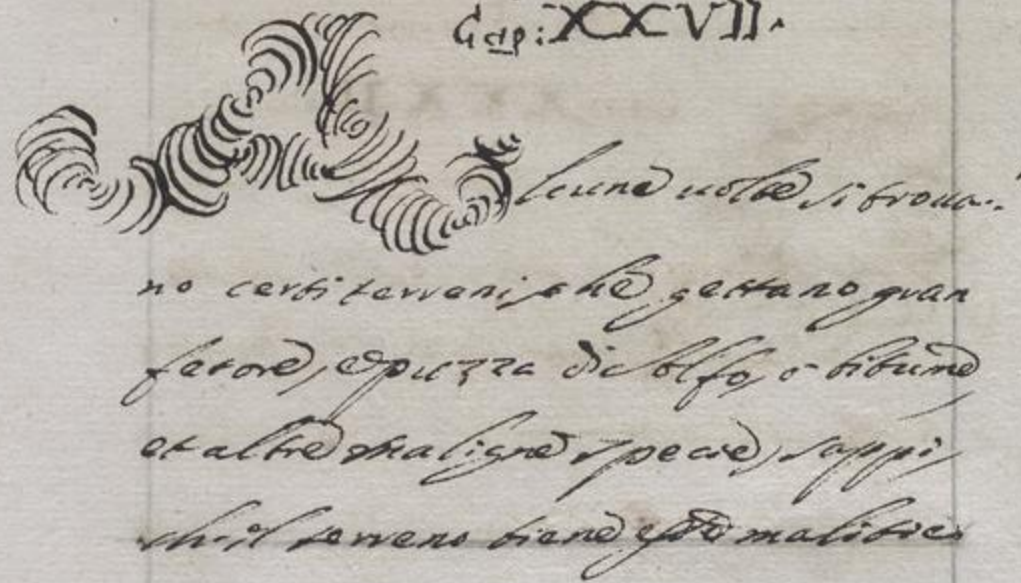 Cap: XXVII.
Alcune uolte si troua..
no certi terreni, che gettano gran
fetore, e puzza di solfo, o bitume,
et altre maligne specie, sappi,
ch'il terreno tiene